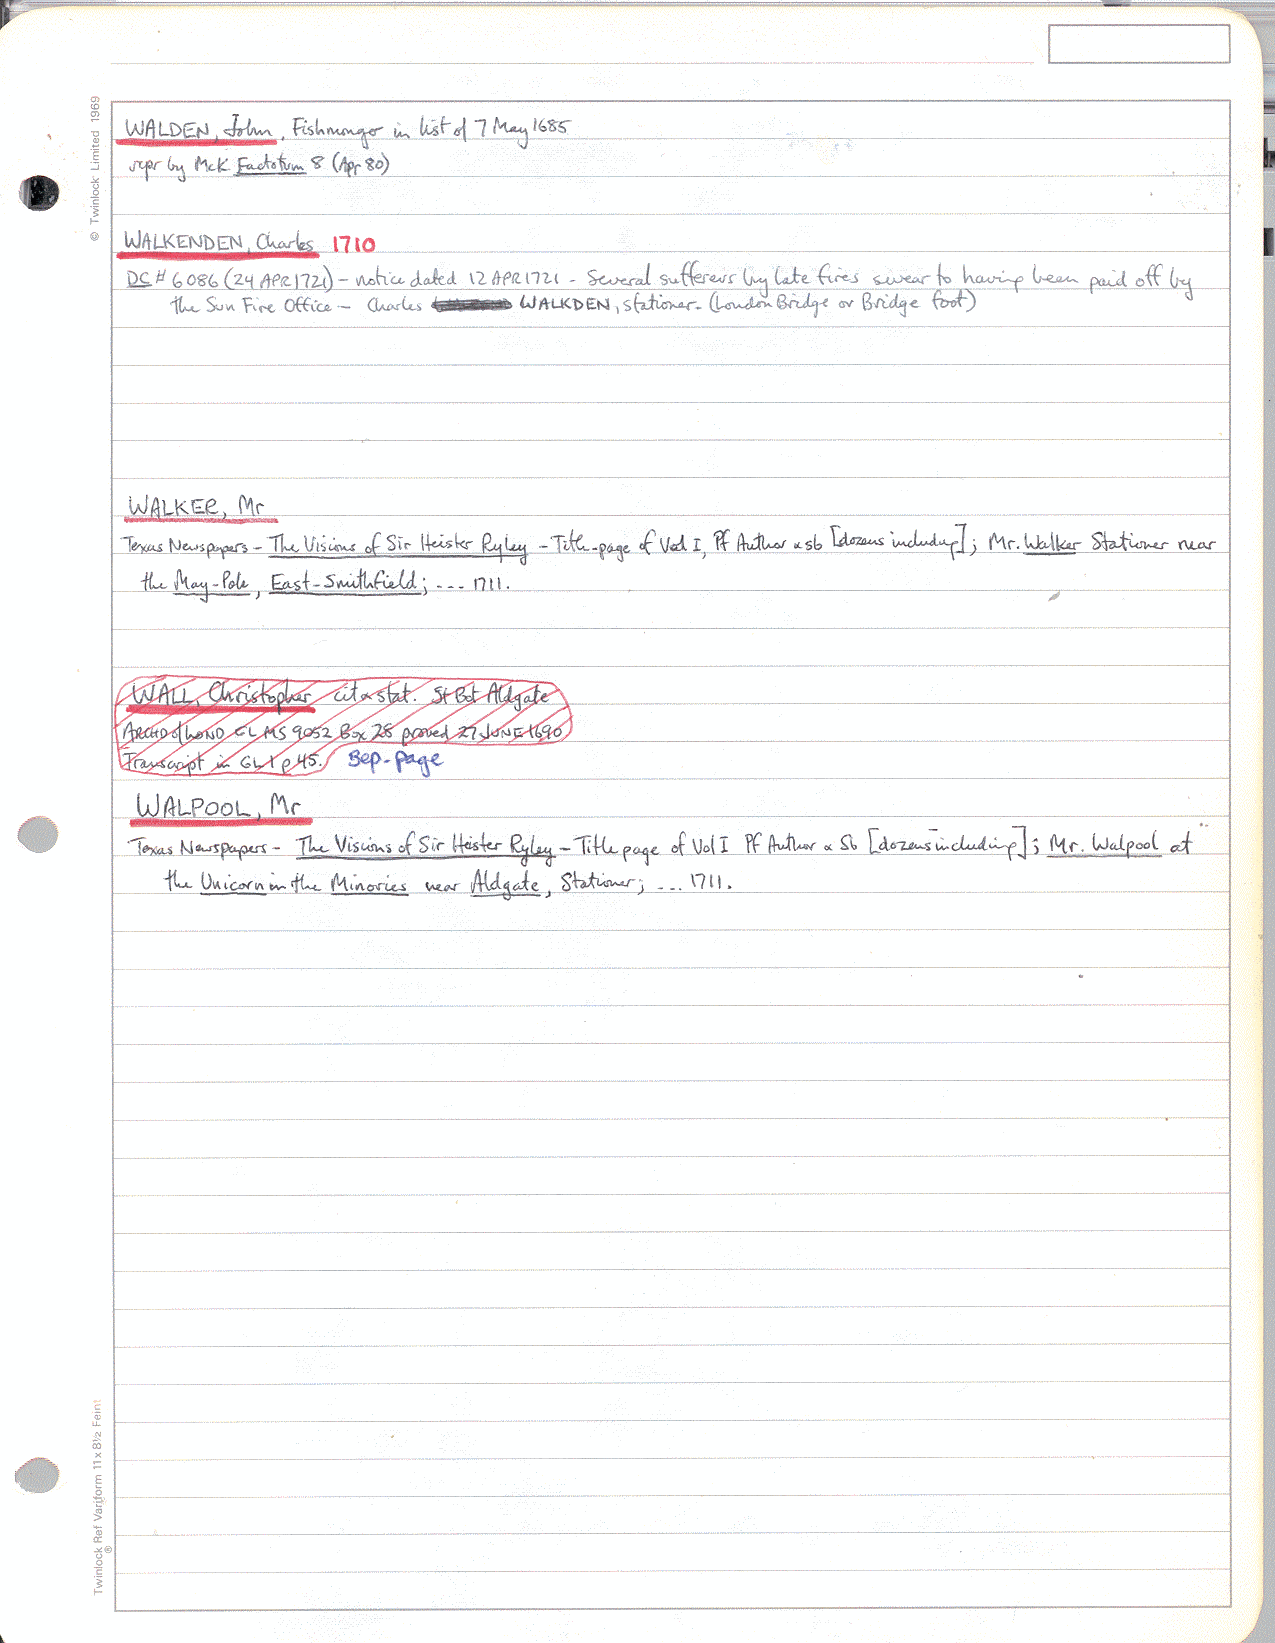 WALDEN, John, Fishmonger in list of 7 May 1685
repr by McK Factotum 8 (Apr 80)
WALKENDEN, Charles 1710
DC # 6086 (24 APR 1721) – notice dated 12 APR 1721 - Several sufferers by late fires swear to having been paid off by
the Sun Fire Office – Charles WALKDEN, stationer - (London Bridge or Bridge foot)
WALKER, Mr
Texas Newspapers – The Visions of Sir Heister Ryley – Title-page of Vol I, Pf Author & sb [dozens including]; Mr. Walker Stationer near
the May-Pole, East-Smithfield; --- 1711.
WALL, Christopher cit & stat. St Bot Aldgate
ARCHD of LOND GL MS 9052 Box 28 proved 27 JUNE 1690
Transcript in GL 1 p 45. Sep-page
WALPOOL, Mr
Texas Newspapers – The Visions of Sir Heister Ryley – Title page of Vol I Pf Author & Sb [dozens including]; Mr. Walpool at
the Unicorn in the Minories near Aldgate, Stationer; --- 1711.
© Twinlock Limited 1969
Twinlock Ref Variform 11 x 8½ Feint
®